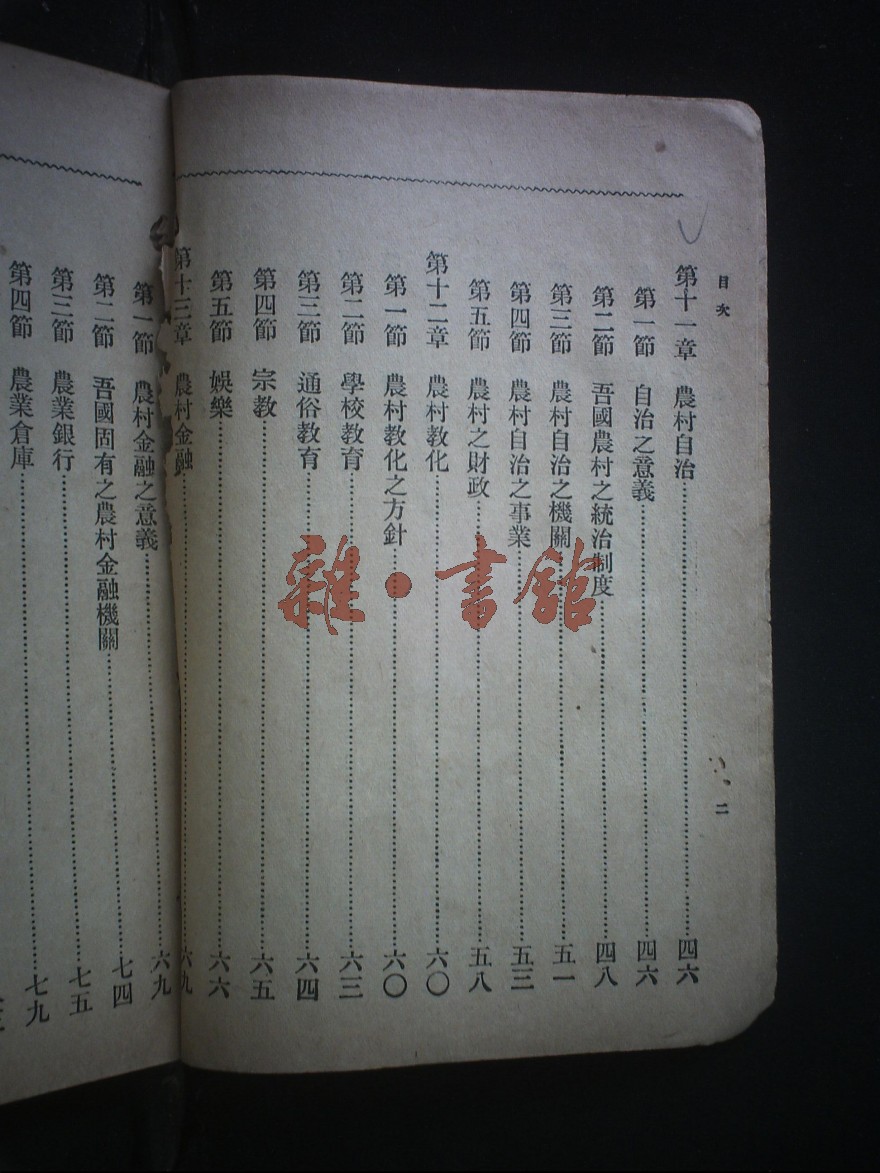 目次
二
第十一章 農村自治……四六
第一節 自治之意義……四六
第二節 吾國農村之統治制度……四八
第三節 農村自治之機關……五一
第四節 農村自治之事業……五三
第五節 農村之財政……五八
第十二章 農村教化……六〇
第一節 農村教化之方針……六〇
第二節 學校教育……六三
第三節 通俗教育……六四
第四節 宗教……六五
第五節 娛樂……六六
第十三章 農村金融……六九
第一節 農村金融之意義……六九
第二節 吾國固有之農村金融機關……七四
第三節 農業銀行……七五
第四節 農業倉庫……七九
雜·書館